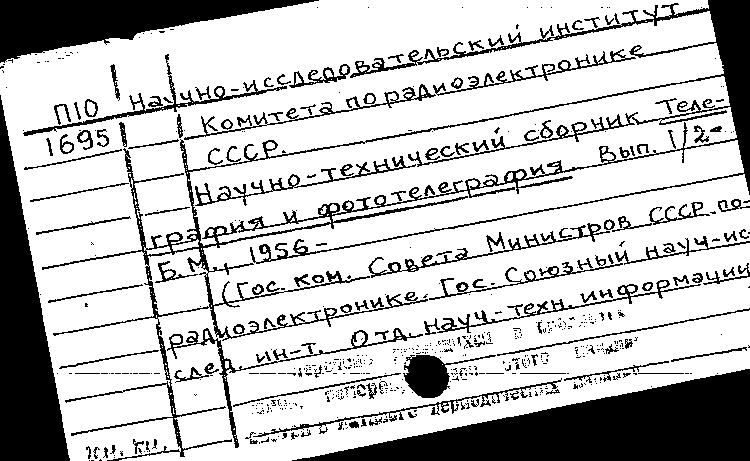 Научно-исследовательский институт
П10
1695
Комитета по радиоэлектронике
СССР.
Научно-технический сборник Теле-
графия и фототелеграфия. Вып. 1/2-
Б.М., 1956-
(Гос. ком. Совета Министров СССР по
радиоэлектронике. Гос. Союзный науч-ис-
след. ин-т. Отд. науч.-техн. информации
этого
периодических